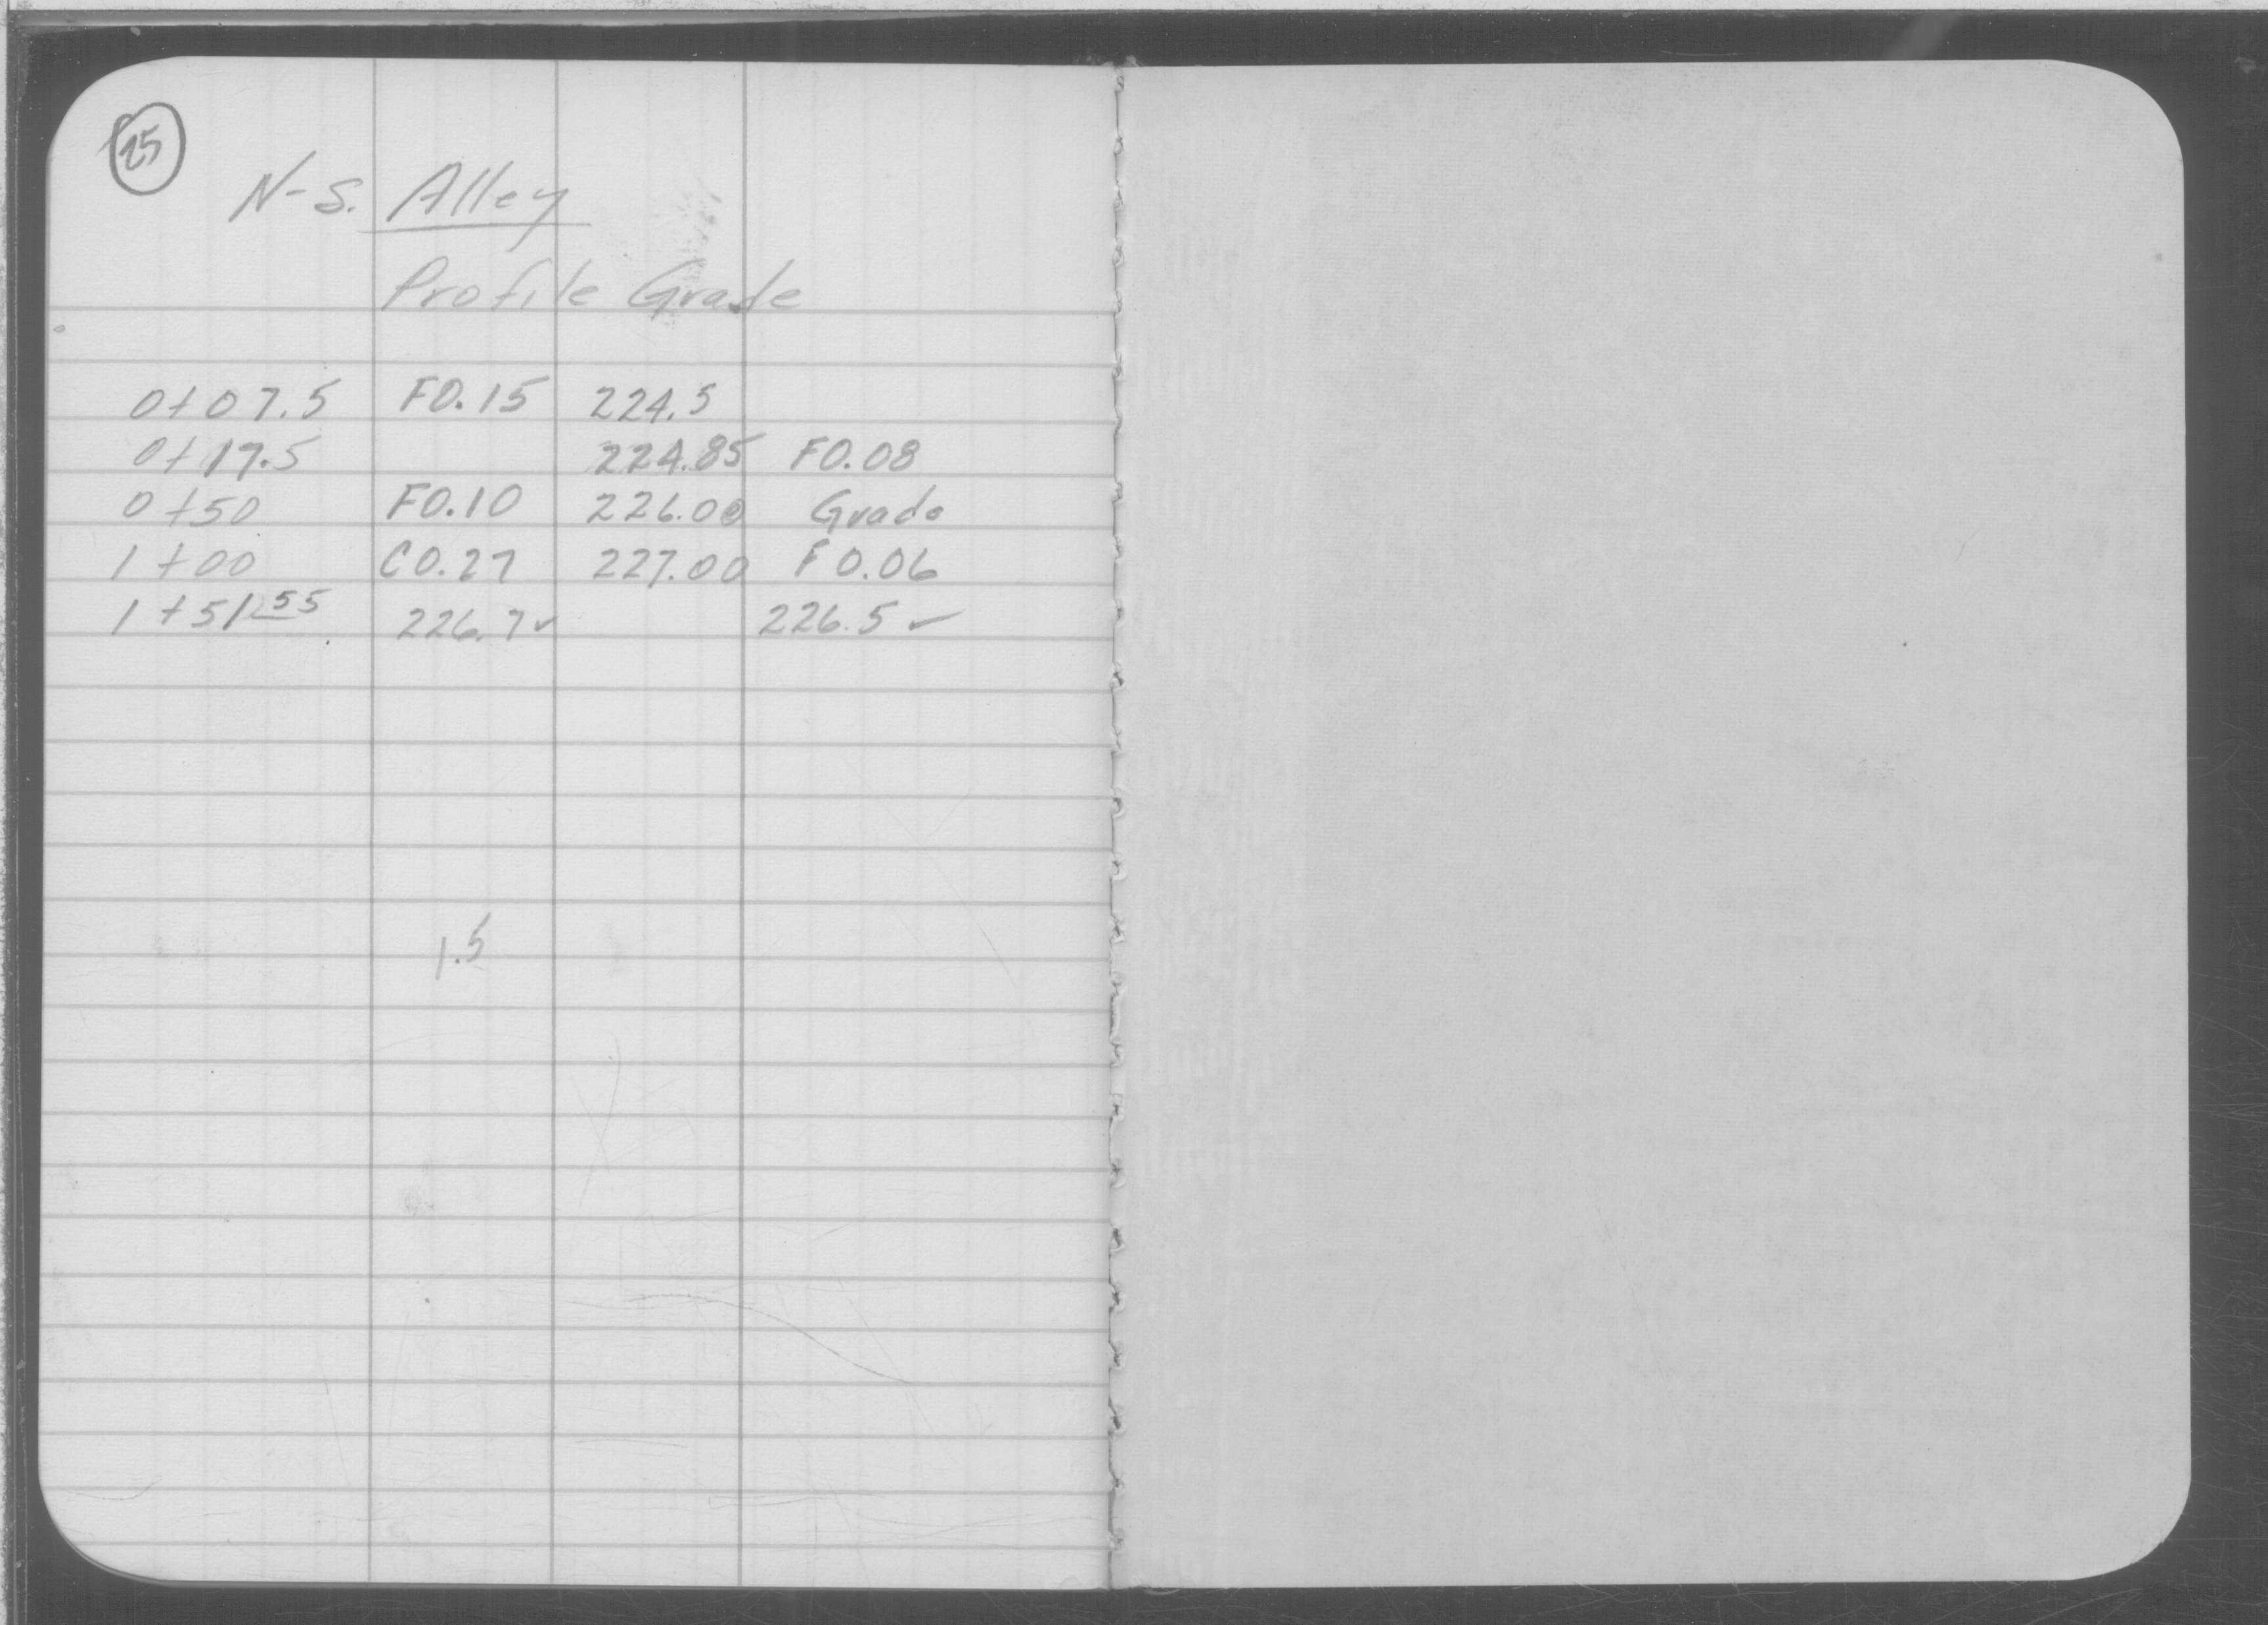 25
N-S. Alley
Profile Grade
0+07.5 F0.15 224.5
0+17.5 224.85 F0.08
0+50 F0.10 226.00 Grade
1+00 C0.27 227.00 F0.06
226.7✓ 226.5✓
1.5